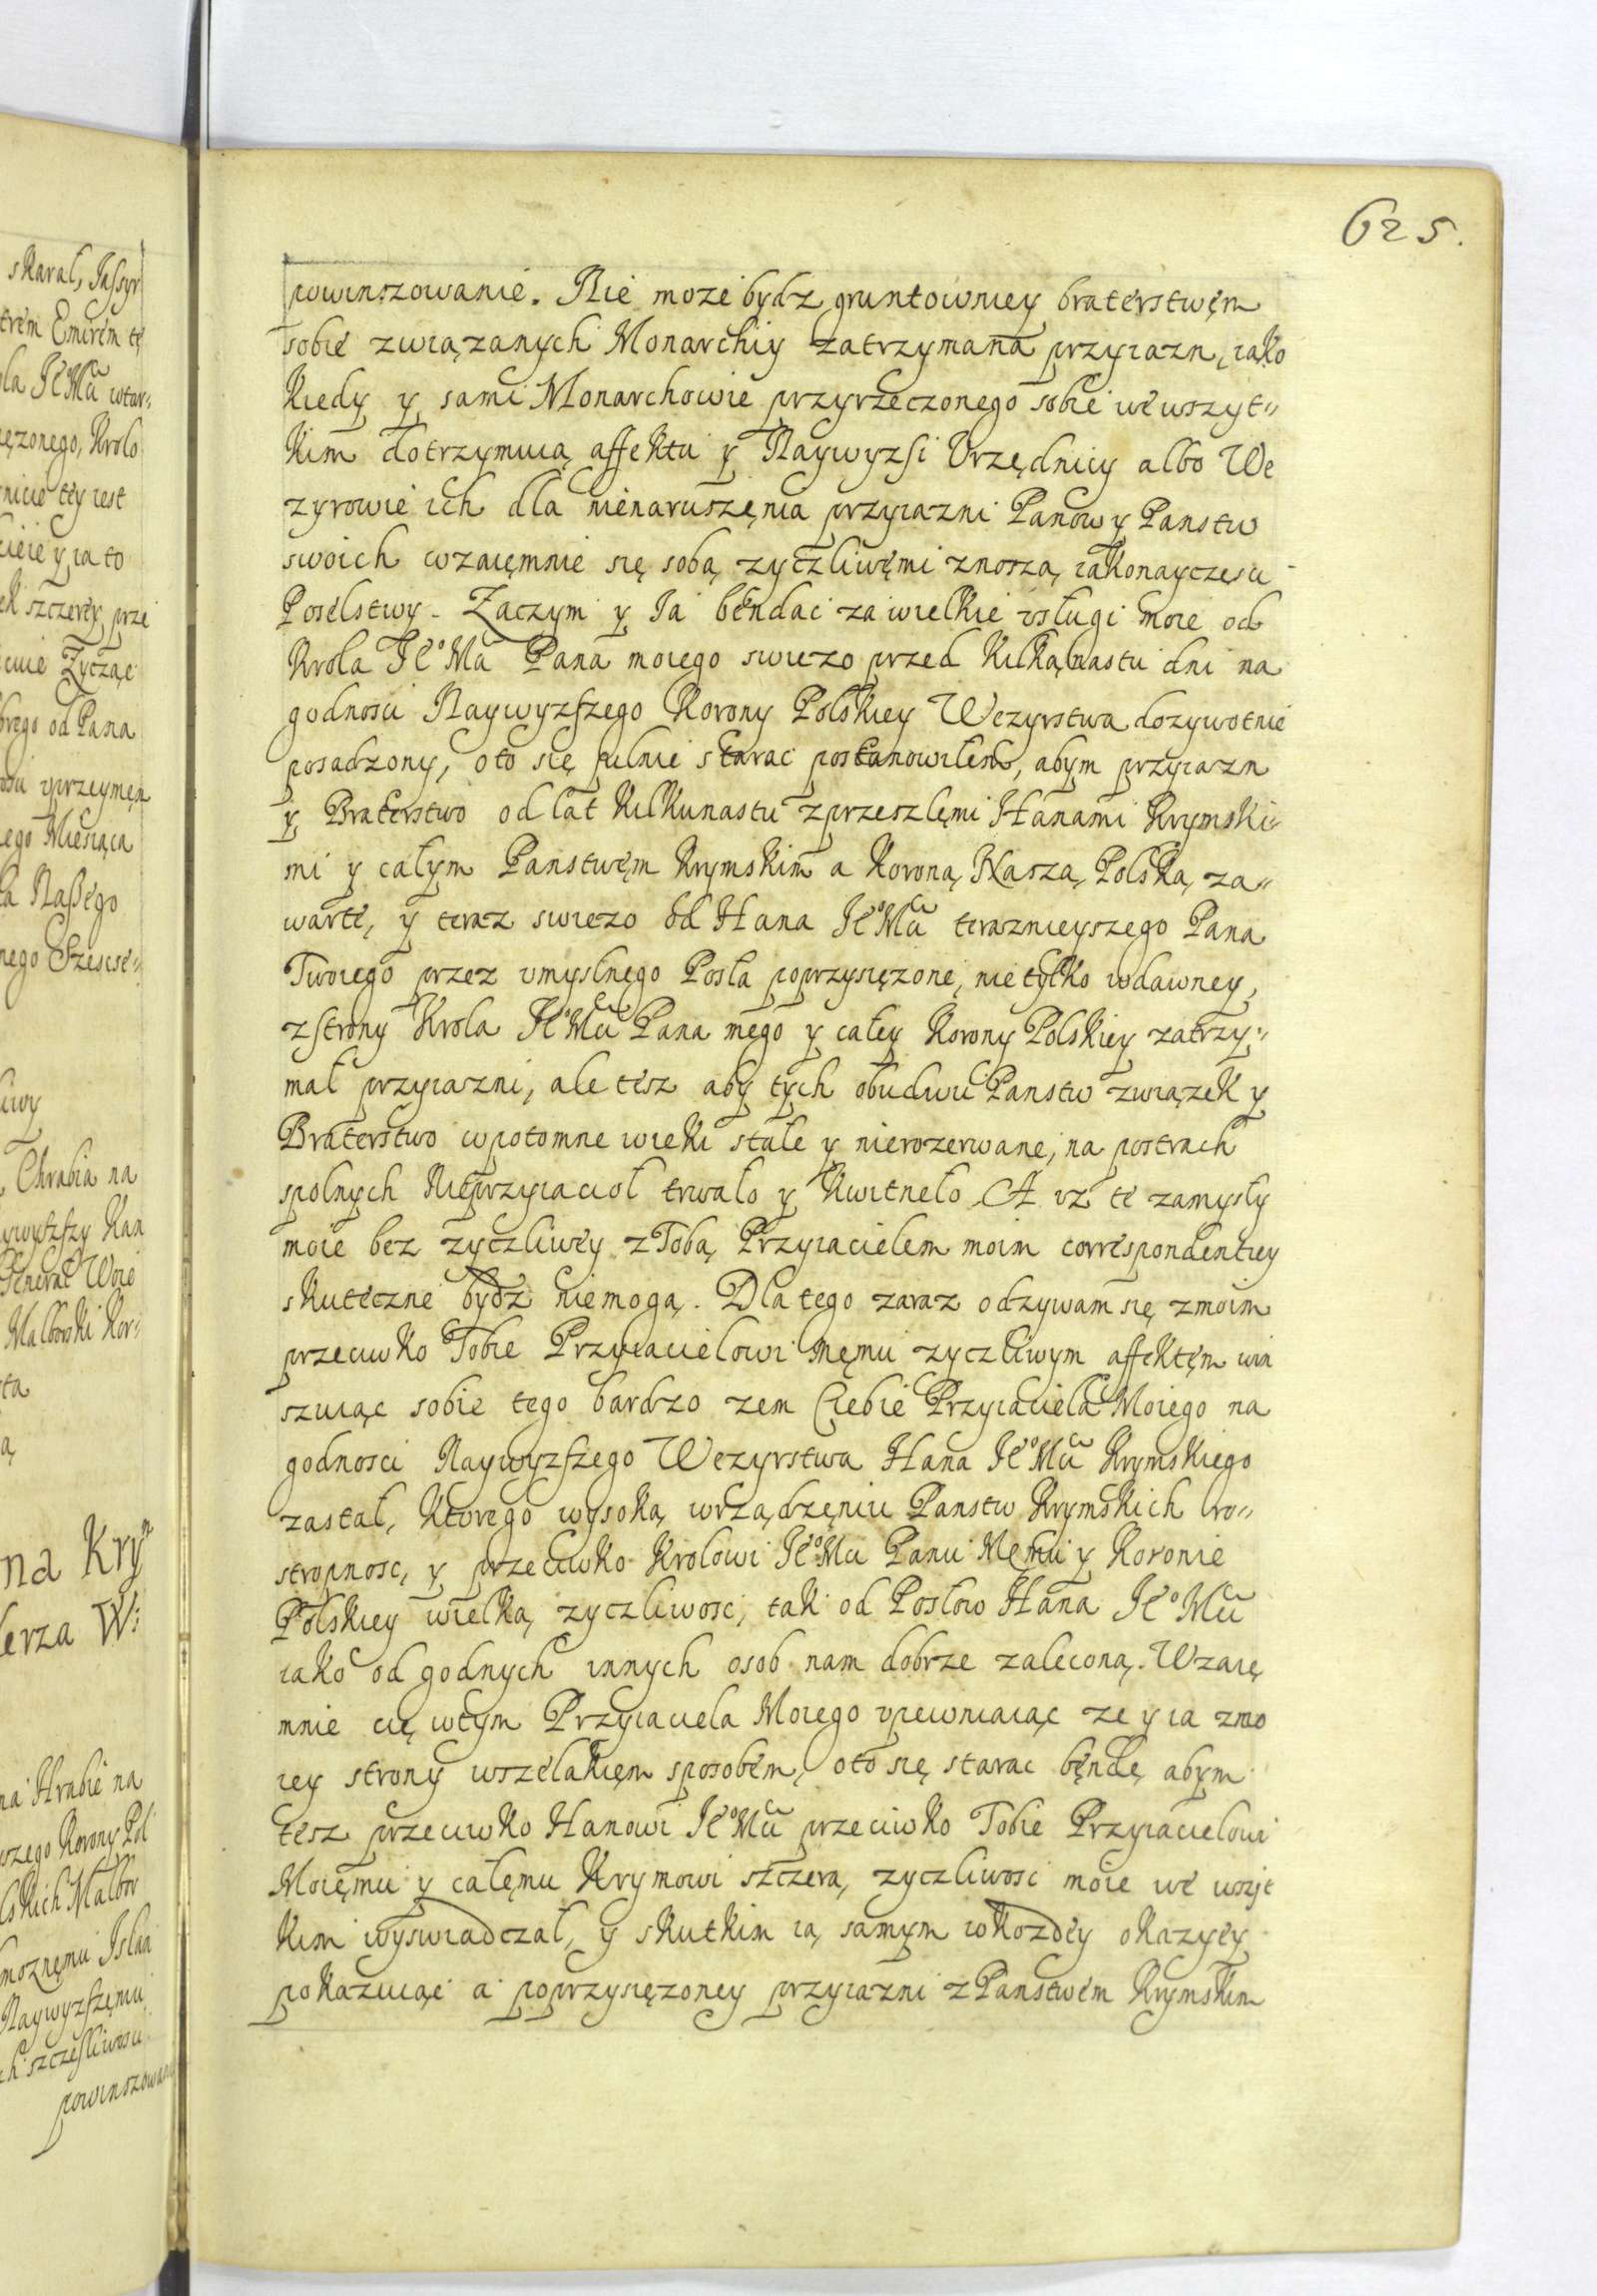 625.
powinszowanie. Nie może bydz gruntowniey braterstwęm
sobie związanych Monarchiy zatrzymana przyiazn, iako
kiedy y sami Monarchowie przyrzeczonego sobie we wszyt„
kim dotrzymuią affektu y Naywyzsi Vrzędnicy albo We
zyrowie ich dla nienaruszęnia przyiazni Panow y Panstw
swoich wzaięmnie się sobą zyczliwęmi znoszą iakonayczęsci
Poselstwy. Zaczym y Ia będnac za wielkie vsługi moie od
Krola Ie͠o Mci Pana moiego swiezo przed kilkąnastu dni na
godnosci Naywyzszego Korony Polskiey Wezyrstwa dozywotnie
posadzony, oto się pilnie starac postanowiłem, abym przyiazn
y Braterstwo od lat kilkunastu z przeszlęmi Hanami Krymski„
mi y całym Panstwęm Krymskim a Koroną Naszą Polską za„
warte, y teraz swiezo od Hana Ie͠o Mci terazneyszego Pana
Twoiego przez vmyslnego Posła poprzysięzone, nie tylko wdawney
z strony Krola Ie͠o Mci Pana mego y całey Korony Polskiey zatrzy„
mał przyiazni, ale tesz aby tych obudwu Panstw związek y
Braterstwo w potomne wieki stale y nierozerwane, na postrach
spolnych Nieprzyiacioł trwało y kwitneło. A iz te zamysły
moie bez zyczliwey z Tobą Przyiacielem moim correspondentiey
skuteczne bydz niemogą. Dla tego zaraz odzywam się z moim
przeciwko Tobie Przyiacielowi męmu zyczliwym affektęm win
szuiąc sobie tego bardzo zem Ciebie Przyiaciela Moiego na
godnosci Naywyzszego Wezyrstwa Hana Ie͠o Mci Krymskiego
zastał, ktorego wysoką wrządzęniu Panstw Krymskich ro„
stropnosc, y przeciwko Krolowi Ie͠o Mci Panu Męmu y Koronie
Polskiey wielką zyczliwosc, tak od Posłow Hana Ie͠o Mci
iako od godnych innych osob nam dobrze zaleconą. Wzaię
mnie cię wtym Przyiaciela Moiego vpewniaiąc ze y ia zmo
iey strony wszelakięm sposobem, oto się starac będnę abym
tesz przeciwko Hanowi Ie͠o Mci przeciwko Tobie Przyiacielowi
Moięmu y całęmu Krymowi szczerą zyczliwosc moie we wszyt
kim wyswiadczał, y skutkim ią samym w kozdey okazyey
pokazuiąc a poprzysięzoney przyiazni z Panstwem Krymskim